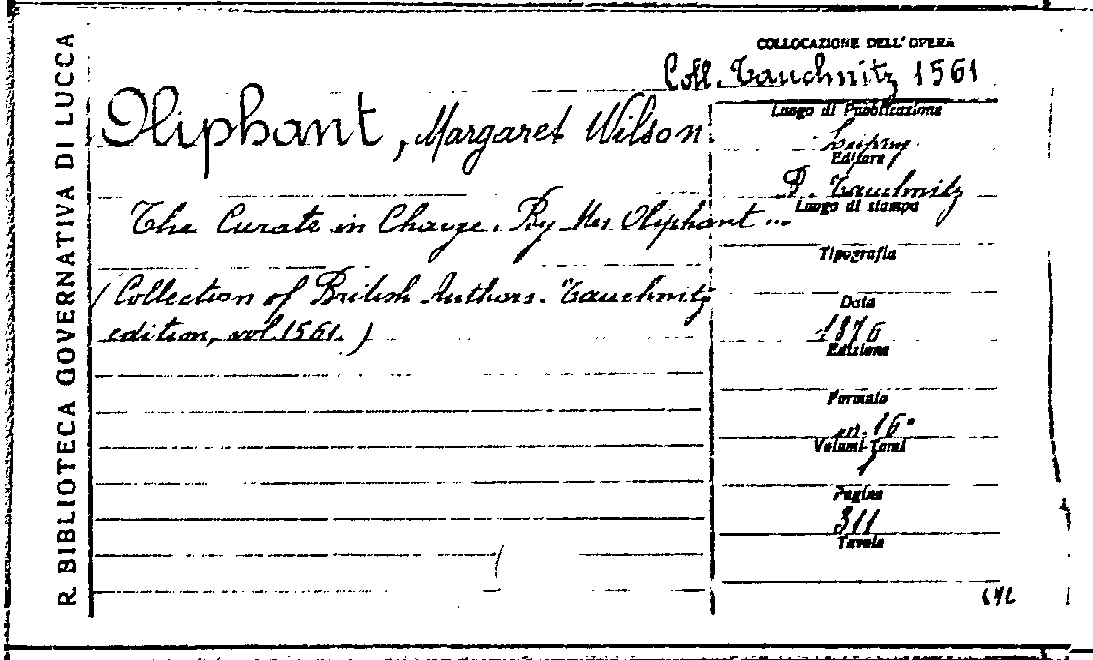 R. BIBLIOTECA GOVERNATIVA DI LUCCA
COLLOCAZIONE DELL'OPERA
Coll. Tauchnitz 1561
Oliphant, Margaret Wilson.
The Curate in Charge. By Mrs Oliphant...
(Collection of British Authors. Tauchnitz
edition, vol. 1561.)
Luogo di Pubblicazione
Leipzig
Editore
B. Tauchnitz
Luogo di stampa
Tipografia
Data
1876
Edizione
Formato
in. 16°
Volumi-Tomi
1
Pagine
311
Tavole